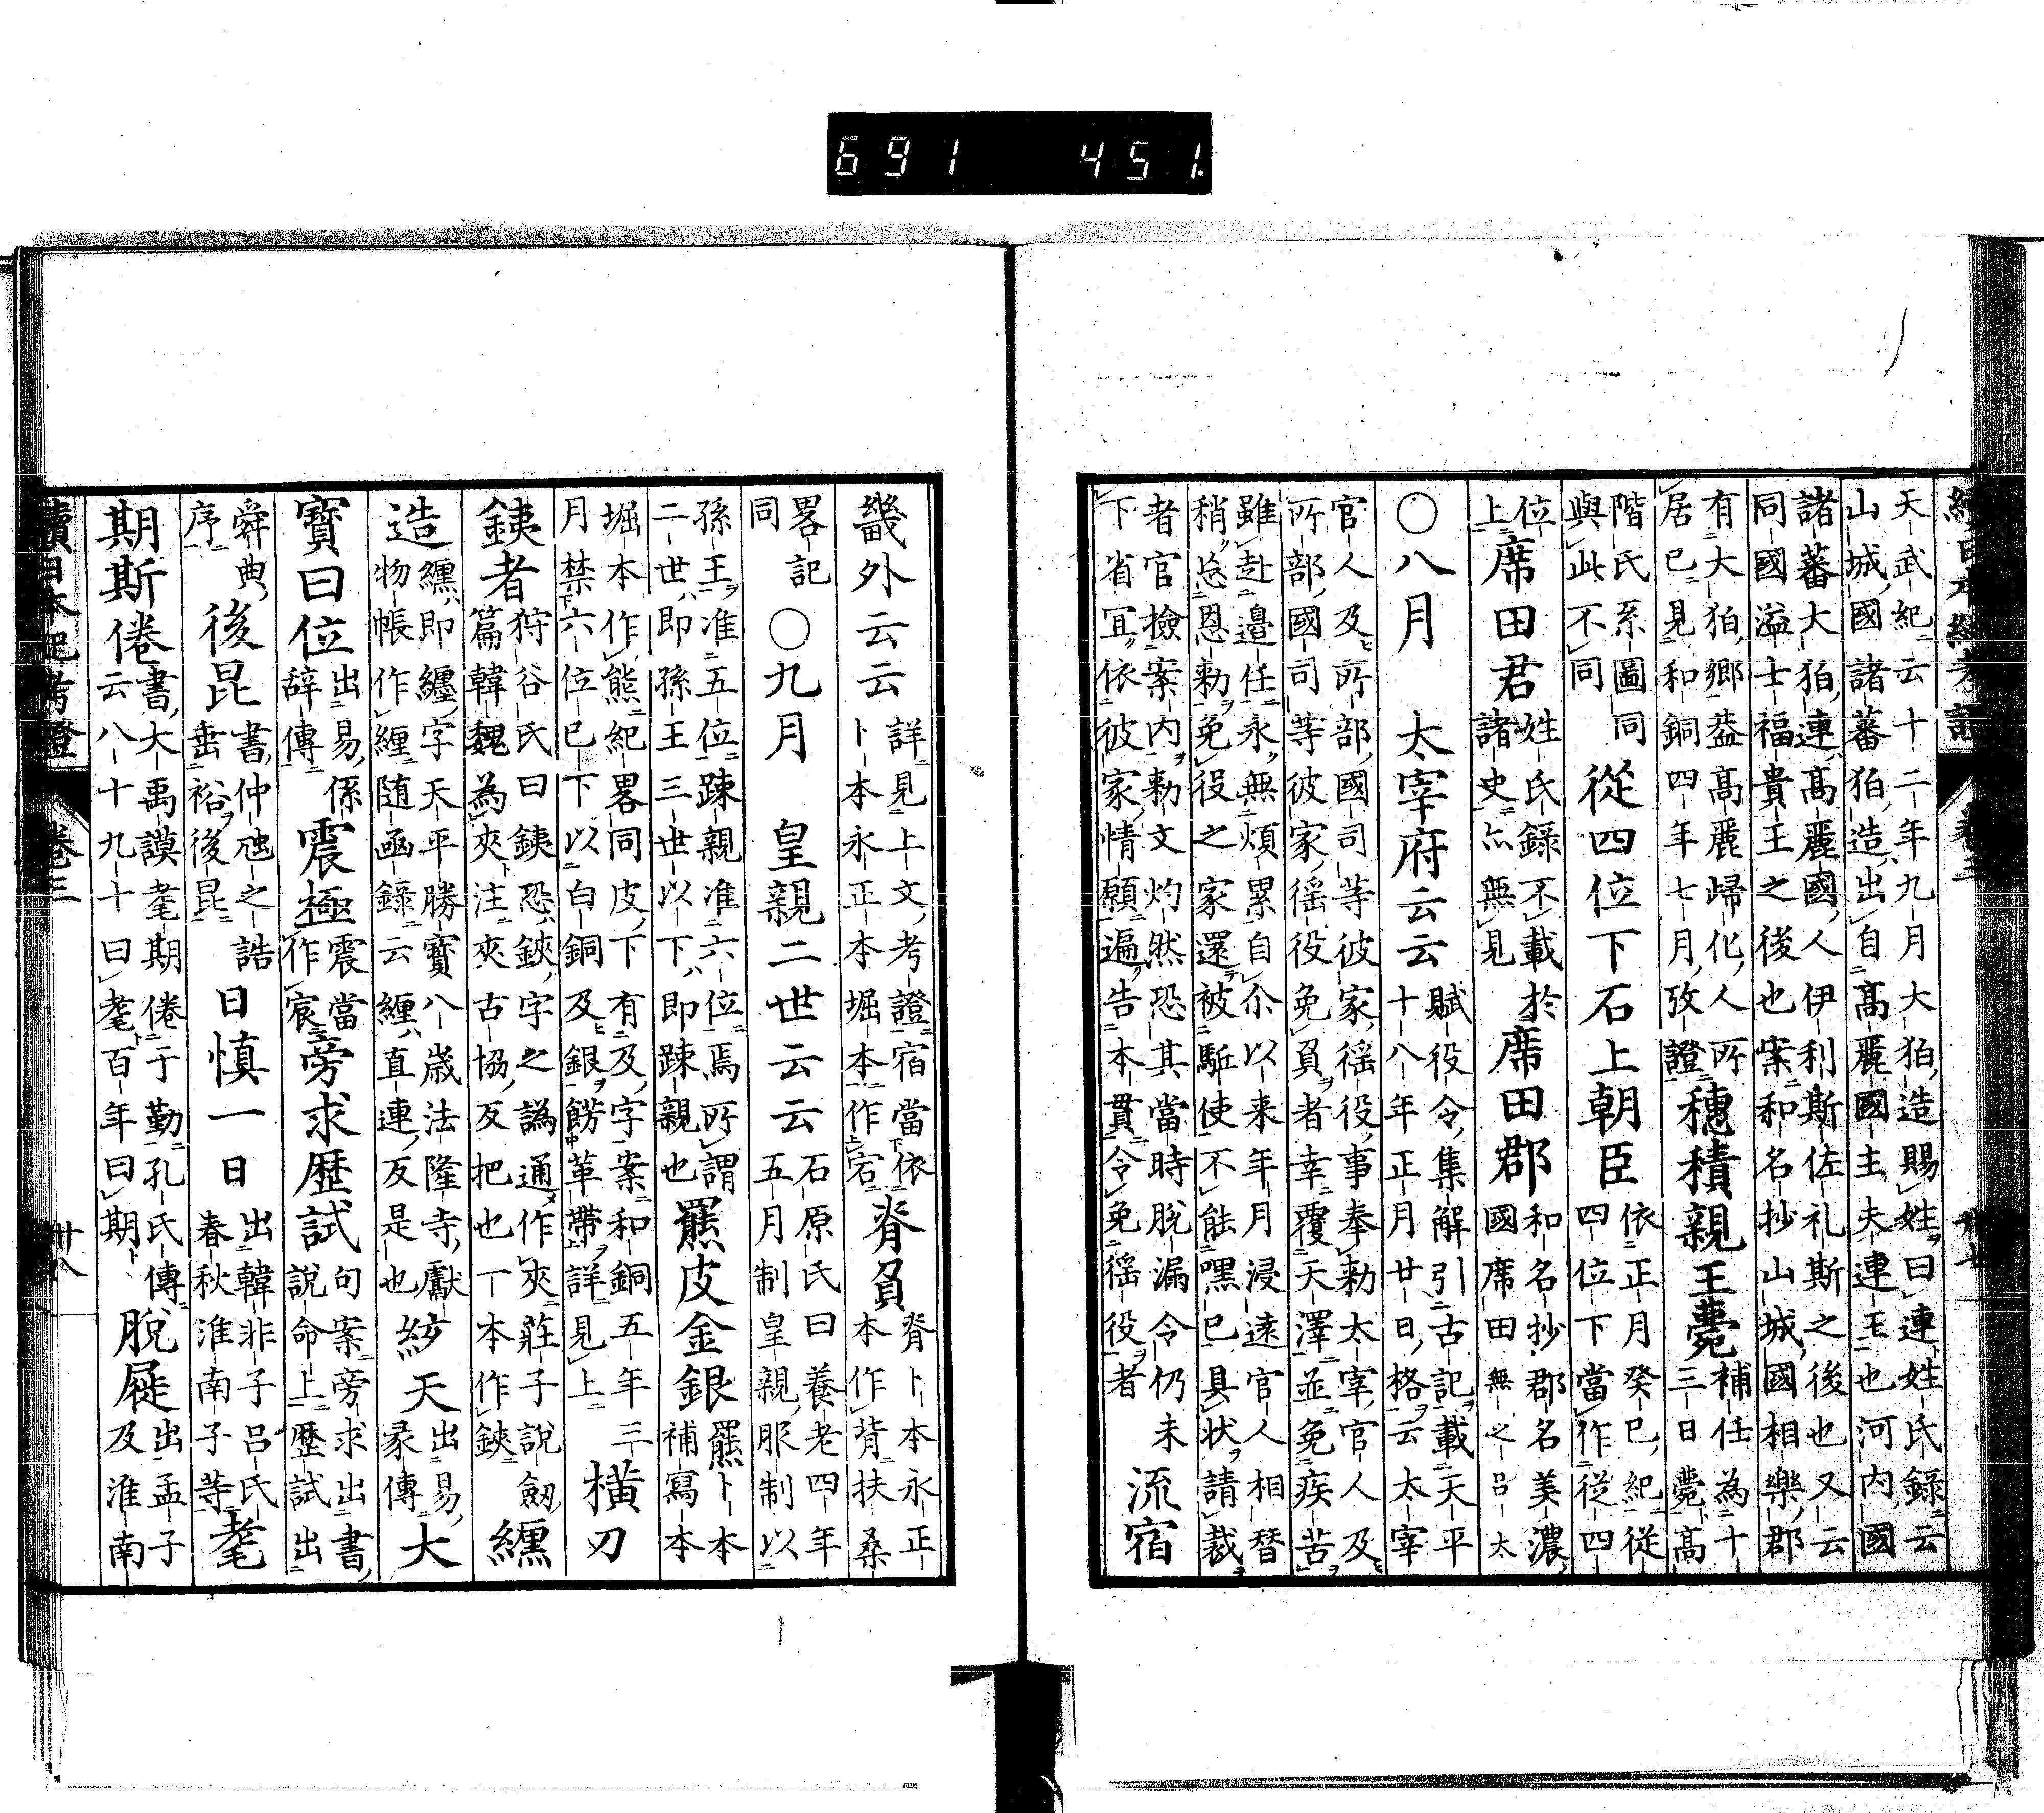 691 451.
天武紀云十二年九月大狛造賜姓曰連姓氏錄云
山城國諸蕃狛造出自高麗國主夫連王也河内國
諸蕃大狛連高麗國人伊利斯佐礼斯之後也又云
同國溢士福貴王之後也案和名抄山城國相樂郡
有大狛鄉葢高麗歸化人所
居已見和銅四年七月攷證
穗積親王薨
補任為十
三日薨高
階氏系圖同
與此不同
從四位下石上朝臣
依正月癸巳紀從
四位下當作從四
位
上
席田君
姓氏錄不載於
諸史亦無見
席田郡
和名抄郡名美濃
國席田無之呂太
○八月
太宰府云云
賦役令集解引古記載天平
十八年正月廿日格云太宰
官人及所部國司等彼家徭役事奉勅太宰官人及
所部國司等彼家徭役免負者幸覆天澤並免疾苦
雖赴邊任永無煩累自尒以来年月浸遠官人相替
稍忘恩勅免役之家還被駈使不能嘿已具状請裁
者官檢案内勅文灼然恐其當時脫漏令仍未
下省宜依彼家情願遍告本貫令免徭役者
流宿
畿外云云
詳見上文考證宿當依
卜本永正本堀本作宕
脊負
脊卜本永正
本作背扶桑
畧記
同
○九月
皇親二世云云
石原氏曰養老四年
五月制皇親服制以
孫王准五位踈親准六位焉所謂
二世即孫王三世以下即踈親也
羆皮金銀
羆卜本
補寫本
堀本作熊紀畧同皮下有及字案和銅五年三
月禁六位已下以白銅及銀餝革帶詳見上
橫刀
鋏者
狩谷氏曰鋏恐鋏字之譌通作夾莊子說劔
篇韓魏為夾注夾古協反把也一本作鋏
纏
造
纏即纒字天平勝寶八歲法隆寺獻
物帳作纒随凾錄云纒直連反是也
絃天
出易
彖傳
大
寳曰位
出易係
辞傳
震極
震當
作宸
旁求歴試
句案旁求出書
說命上歴試出
舜典
序
後昆
書仲虺之誥
垂裕後昆
日慎一日
出韓非子呂氏
春秋淮南子等
耄
期斯倦
書大禹謨耄期倦于勤孔氏傳
云八十九十曰耄百年曰期
脫屣
出孟子
及淮南
續日本紀考證
卷三
廿八